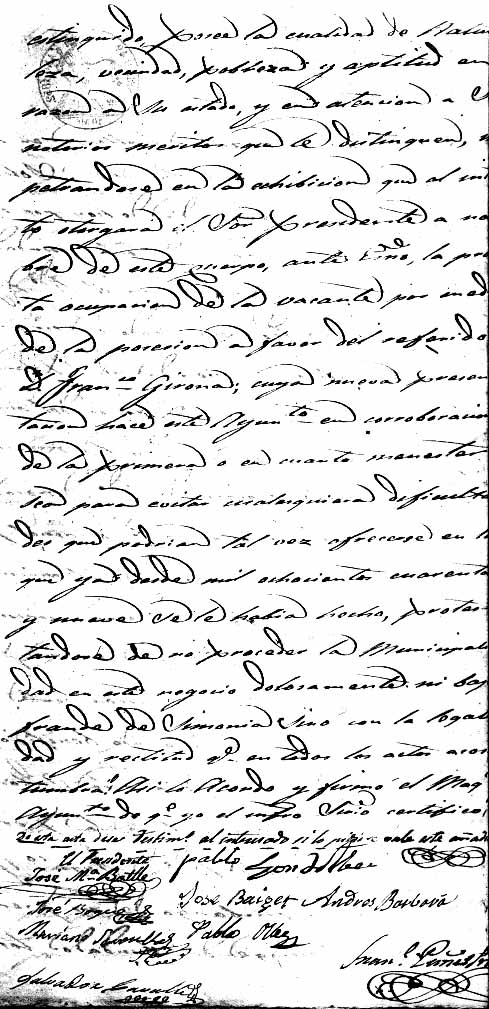 estinguido, posee la cualidad de Natu
leza, vecindad, pobleza y aptitud en
su estado, y en atencion a
notorios meritos que le distinguen,
petrandose en la exhibicion que al in
to otorgara el Sor. Presidente a no
bre de este cuerpo, ante Essno, la pro
ta ocupacion de la vacante por med
de la posesion a favor del referido
Dn. Franco. Girona; cuya nueva presen
tacion hace este Ayunto. en corroboracion
de la primera o en cuanto menester
sea para evitar cualesquiera dificulta
des que podrian tal vez ofrecerse en
que ya desde mil ochocientos cuarenta
y nueve se le habia hecho, protes
tandose de no proceder la Municipali
dad en este negocio dolosamente ni baj
fraude de Simonia sino con la legali
dad y rectitud qe. en todos los actos acos
tumbra. Asi lo Acordo y firmó el Magº
Ayunto. de qe. yo el infro Srio certifico.
De esta acta dese testimº al interesado si lo pidi vale este
El Presidente
José Ma. Batlle
Pablo
José Baiget
Andres Barberá
José
Mariano
Pablo
Salvador
Franco.